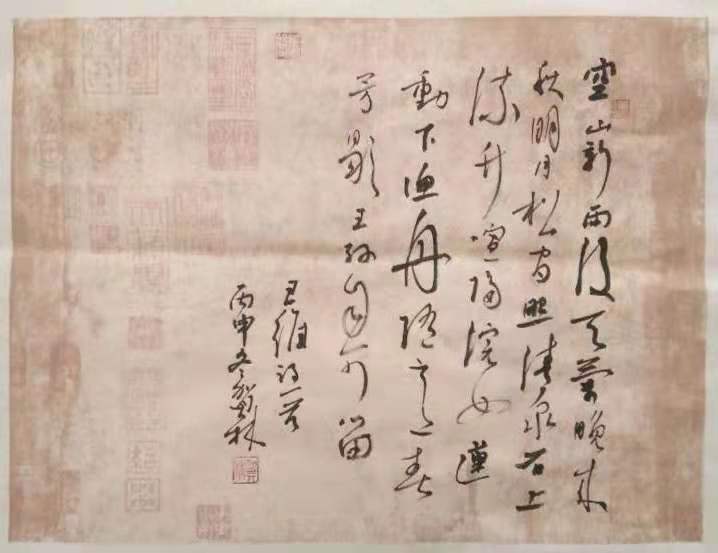 空山新雨後天氣晚來
秋明月松間照清泉石上
流竹喧歸浣女蓮
動下漁舟隨意春
芳歇王孫自可留
王維詩一首
丙申冬賀林